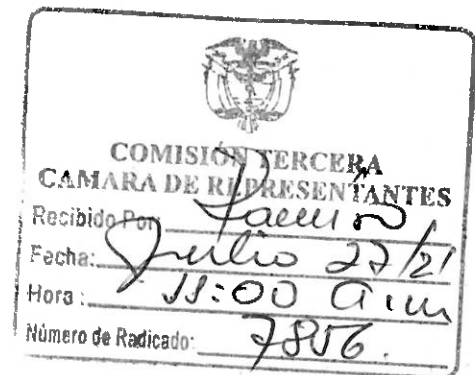 COMISIÓN TERCERA
CAMARA DE REPRESENTANTES
Recibido Por:
Fecha: Julio 27/21
Hora: 11:00 a.m
Número de Radicado: 7856.